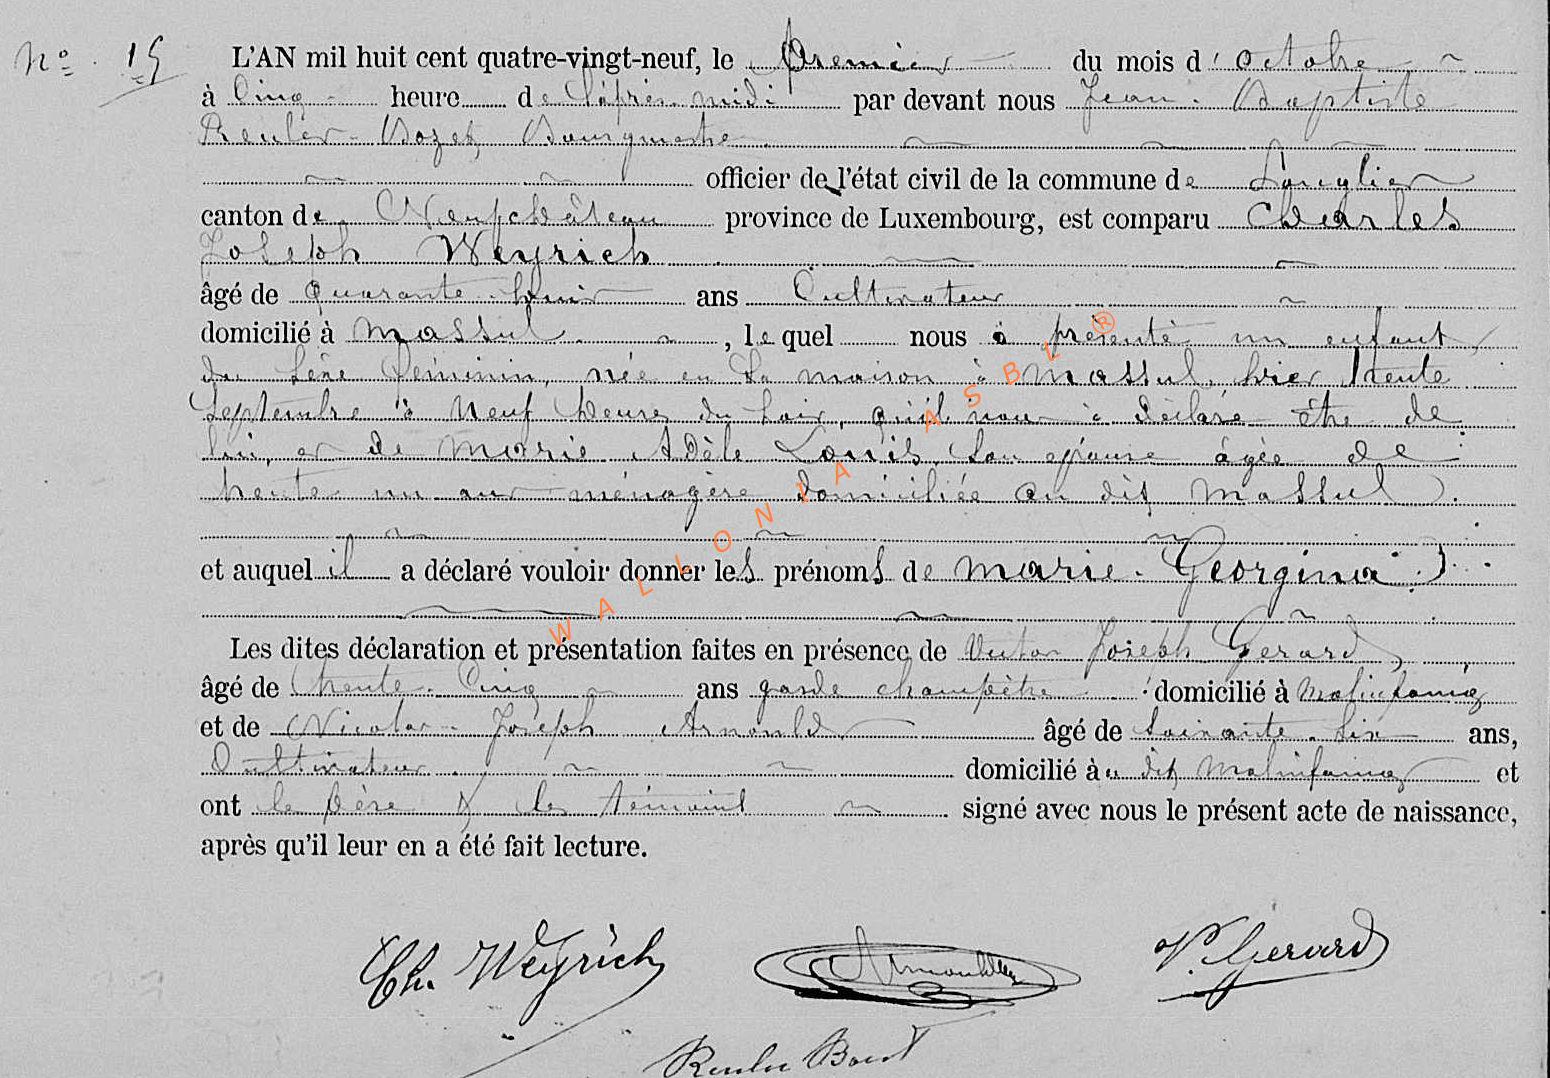 Nº 15
L'AN mil huit cent quatre-vingt-neuf, le premier du mois d'octobre
à Cinq heure de l'après midi par devant nous Jean Baptiste
Reuler-Bozet, Bourgmestre
officier de l'état civil de la commune de Longlier
canton de Neufchâteau province de Luxembourg, est comparu Charles
Joseph Weyrich
âgé de quarante huit ans Cultivateur
domicilié à Massul, lequel nous a présenté un enfant
du sexe féminin, née en sa maison à Massul, hier trente
Septembre à neuf heures du soir, qu'il nous a déclaré être de
lui, et de Marie Adèle Louis, son épouse âgée de
trente un ans ménagère domiciliée au dit Massul.
et auquel il a déclaré vouloir donner les prénoms de Marie-Georgina
Les dites déclaration et présentation faites en présence de Victor Joseph Gerard,
âgé de trente-Cinq ans garde champêtre domicilié à Molinfaing
et de Nicolas-Joseph Arnould âgé de soixante-six ans,
Cultivateur domicilié au dit Molinfaing et
ont le père & les témoins signé avec nous le présent acte de naissance,
après qu'il leur en a été fait lecture.
Ch. Weyrich Arnould V. Gerard
WALLONIA ASBL ®